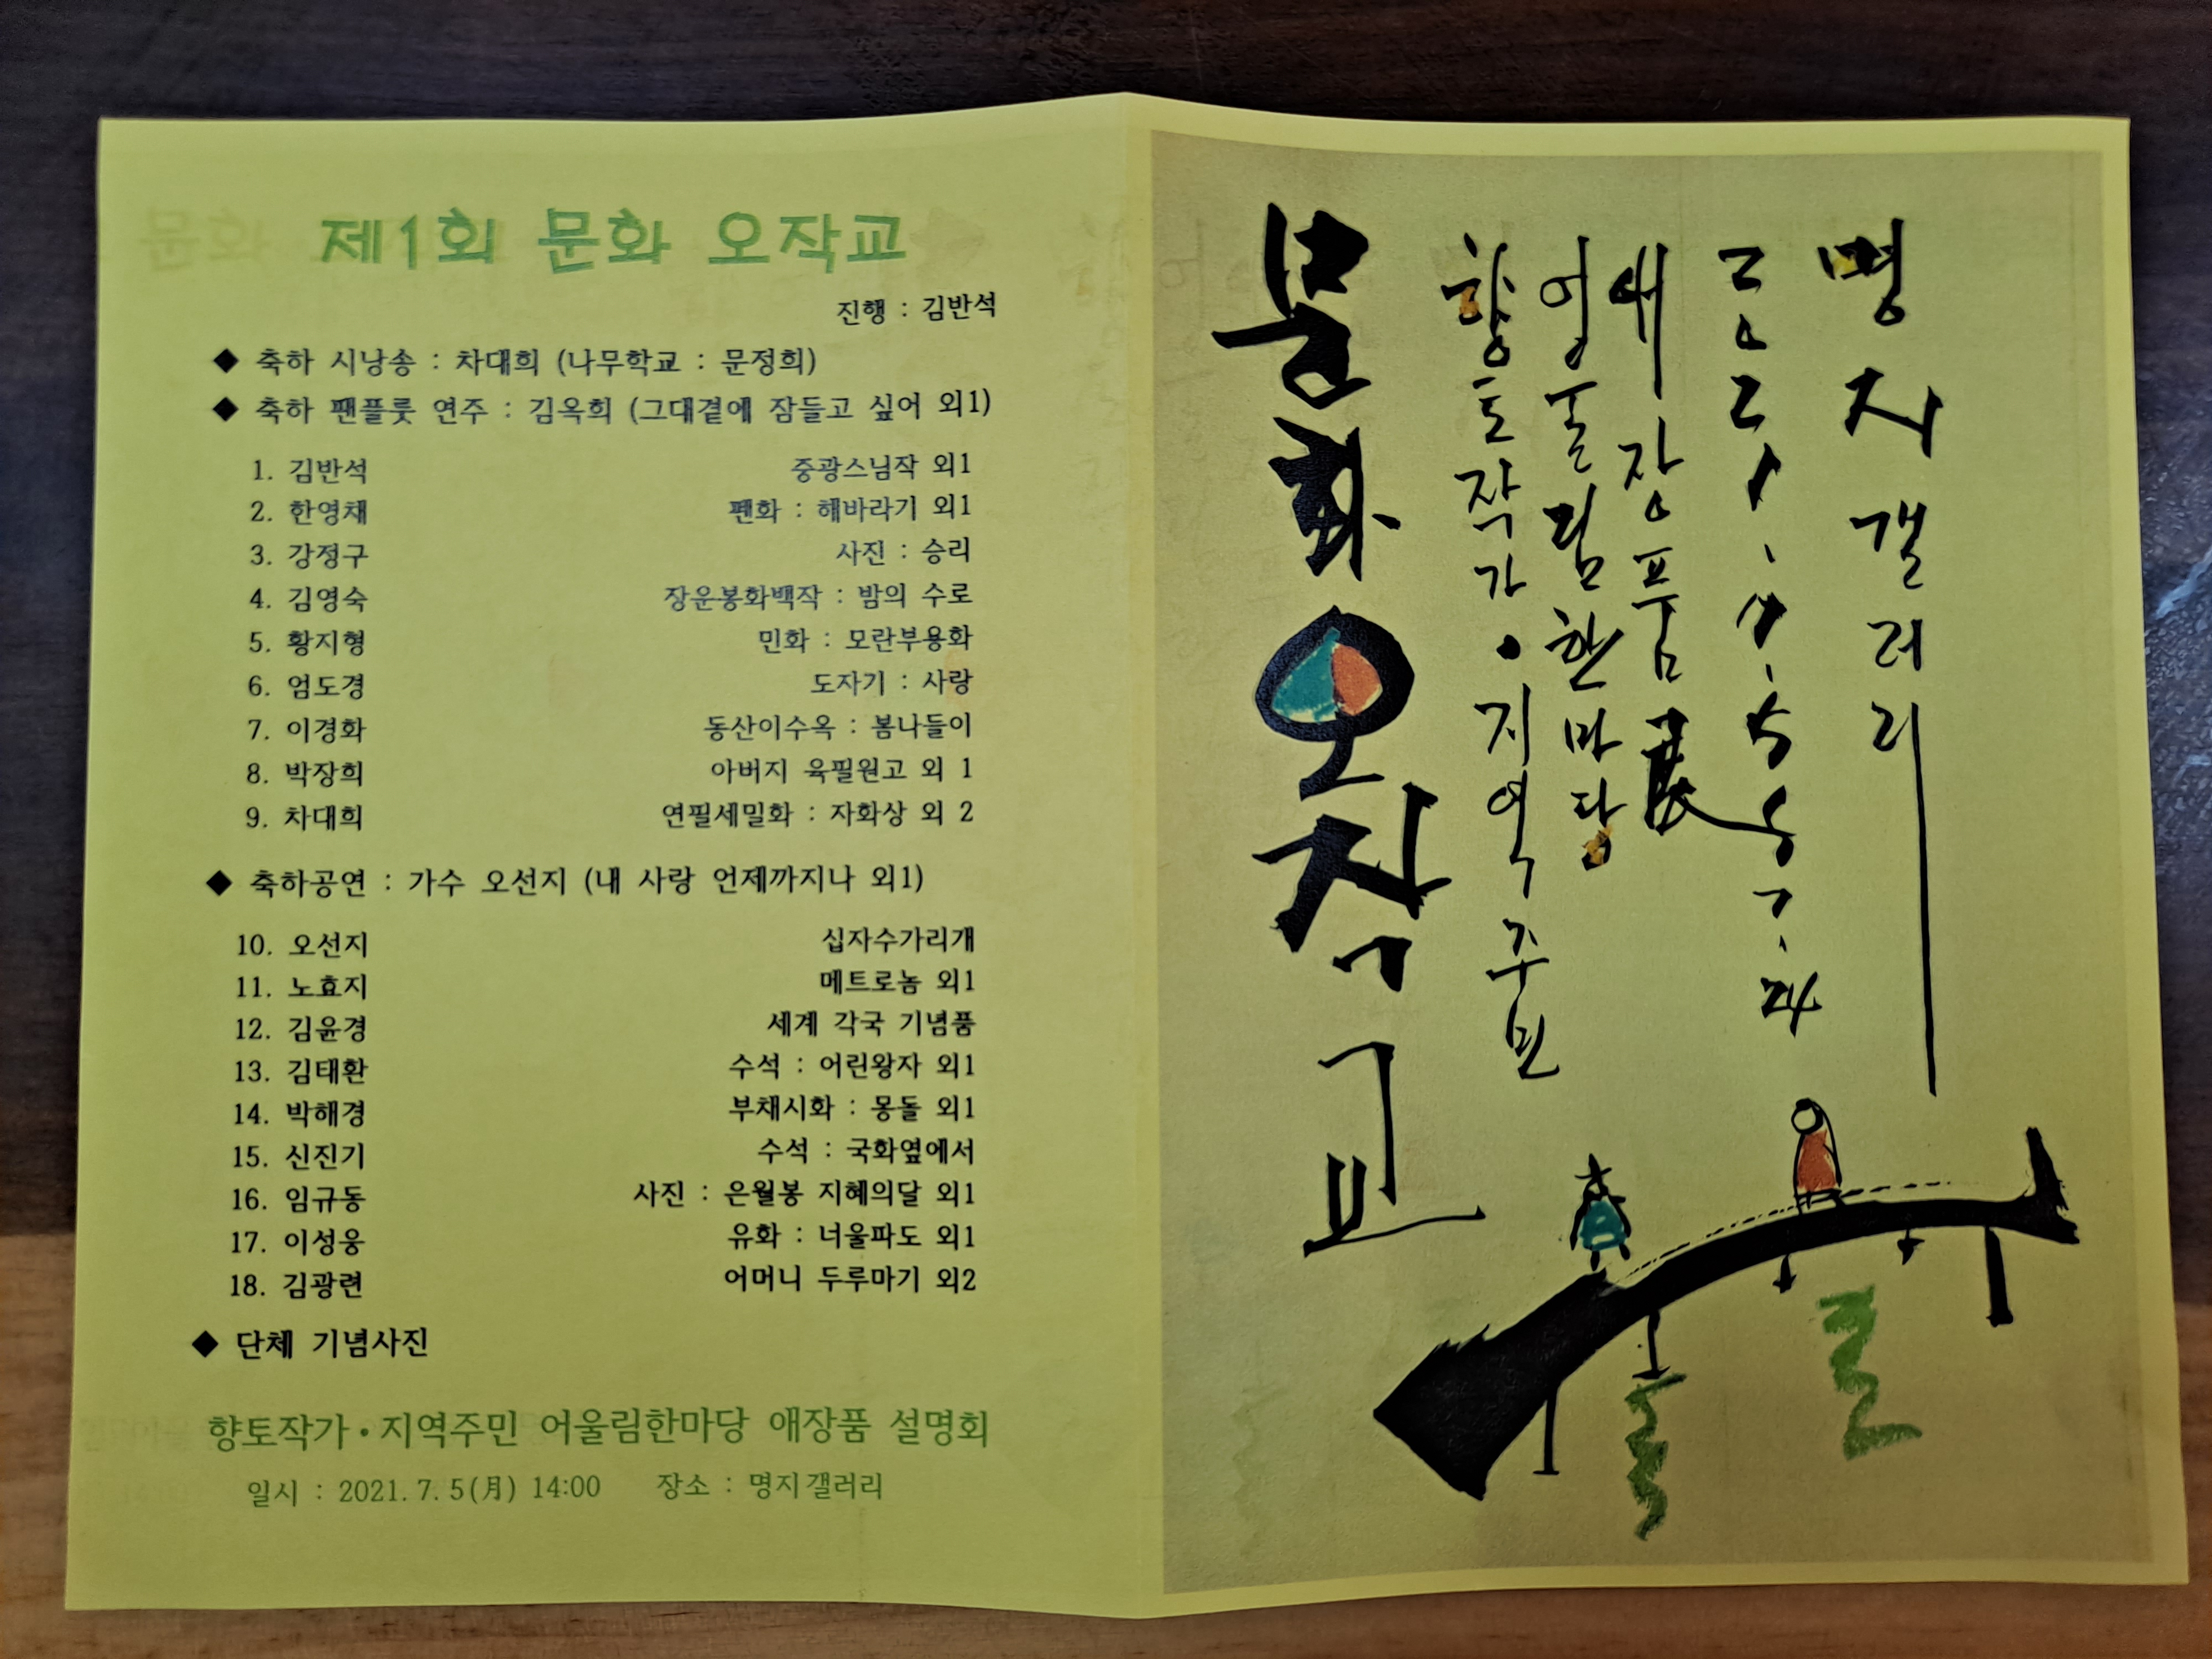 제1회 문화 오작교
진행 : 김반석
◆ 축하 시낭송 : 차대희 (나무학교 : 문정희)
◆ 축하 팬플룻 연주 : 김옥희 (그대곁에 잠들고 싶어 외1)
1. 김반석 중광스님작 외1
2. 한영채 펜화 : 해바라기 외1
3. 강정구 사진 : 승리
4. 김영숙 장운봉화백작 : 밤의 수로
5. 황지형 민화 : 모란부용화
6. 엄도경 도자기 : 사랑
7. 이경화 동산이수옥 : 봄나들이
8. 박장희 아버지 육필원고 외 1
9. 차대희 연필세밀화 : 자화상 외 2
◆ 축하공연 : 가수 오선지 (내 사랑 언제까지나 외1)
10. 오선지 십자수가리개
11. 노효지 메트로놈 외1
12. 김윤경 세계 각국 기념품
13. 김태환 수석 : 어린왕자 외1
14. 박해경 부채시화 : 몽돌 외1
15. 신진기 수석 : 국화옆에서
16. 임규동 사진 : 은월봉 지혜의달 외1
17. 이성웅 유화 : 너울파도 외1
18. 김광련 어머니 두루마기 외2
◆ 단체 기념사진
향토작가·지역주민 어울림한마당 애장품 설명회
일시 : 2021. 7. 5(月) 14:00 장소 : 명지갤러리
문화오작교
향토작가·지역주민
어울림한마당
애장품展
2021.
명지갤러리